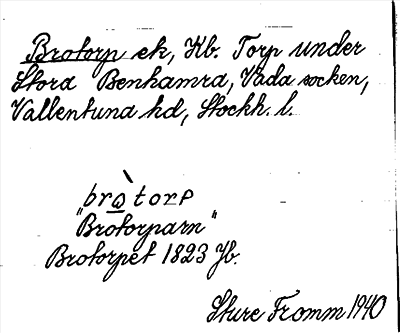 Brotorp ek, Hb. Torp under
Stora Benhamra, Vada socken,
Vallentuna hd, Stockh. l.
bròtorp
"Brotorparn"
Brotorpet 1823 Jb.
Sture Fromm 1940